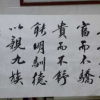 富而不驕
貴而不舒
能明馴德
以親九族